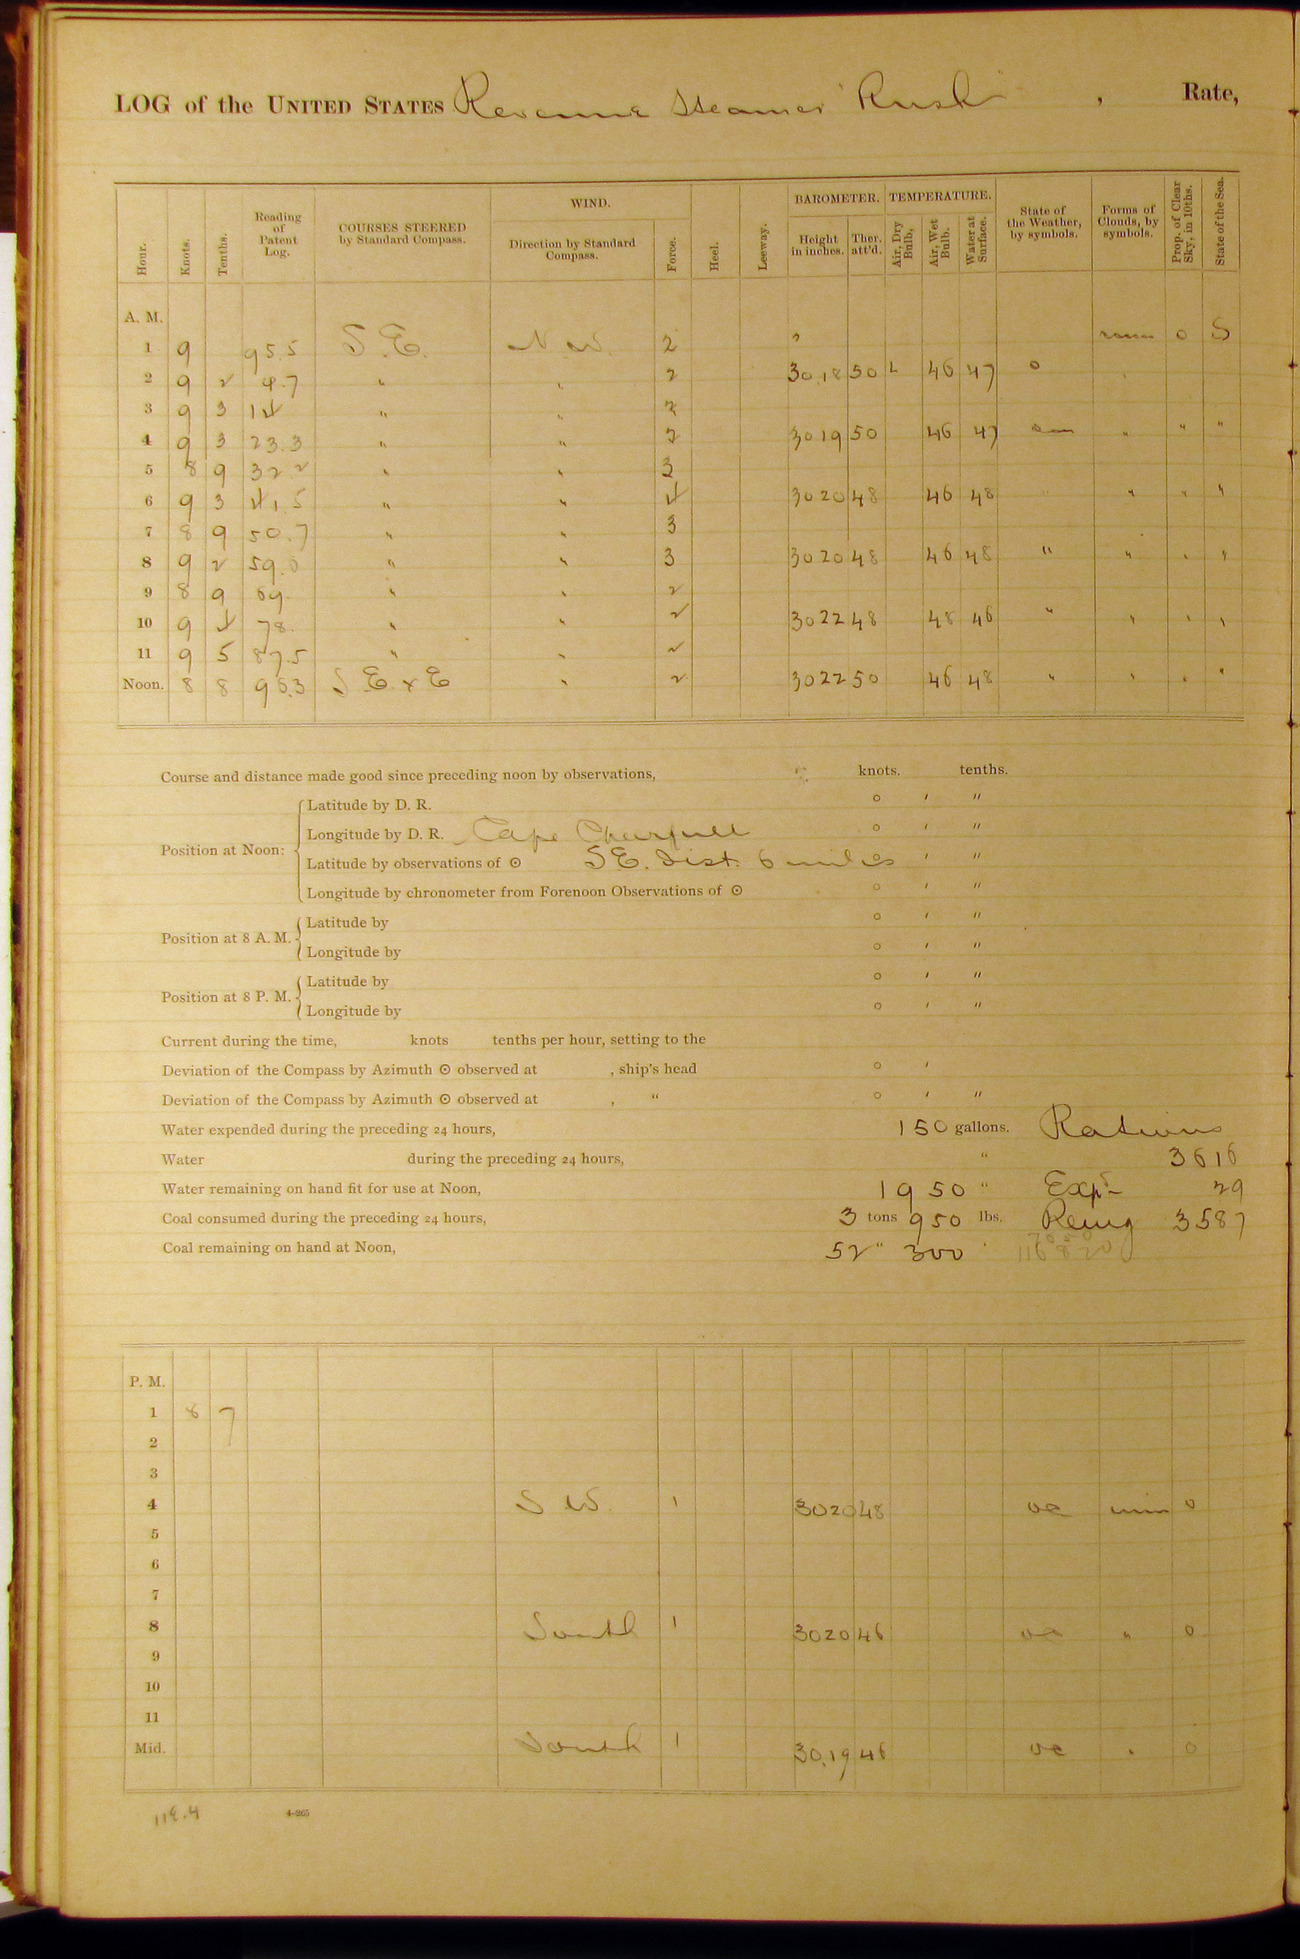 LOG of the UNITED STATES Revenue Steamer Rush , Rate,
Hour. Knots. Tenths. Reading of Patent Log. COURSES STEERED by Standard Compass. WIND. Direction by Standard Compass. Force. Heel. Leeway. BAROMETER. Height in inches. Ther. att'd. TEMPERATURE. Air, Dry Bulb, Air, Wet Bulb. Water at Surface. State of the Weather, by symbols. Forms of Clouds, by symbols. Prop. of Clear Sky, in 10ths. State of the Sea.
A. M.
1 9 95.5 S.E. N W. 2 " 0 S
2 9 2 4.7 " " 2 30.18 50 46 47 o
3 9 3 14 " " 2
4 9 3 23.3 " " 2 30 19 50 46 47 " " "
5 8 9 32 2 " " 3
6 9 3 41.5 " " 4 30 20 48 46 48 " " "
7 8 9 50.7 " " 3
8 9 2 59.0 " " 3 30 20 48 46 48 " " " "
9 8 9 69 " " 2
10 9 4 78. " " 2 30 22 48 48 46 " " " "
11 9 5 87.5 " " 2
Noon. 8 8 96.3 S E x E " 2 30 22 50 46 48 " " " "
Course and distance made good since preceding noon by observations, knots. tenths.
Position at Noon:
Latitude by D. R. ° ′ ″
Longitude by D. R. Cape Cheerfull ° ′ ″
Latitude by observations of ⊙ S E. Dist. 6 miles ° ′ ″
Longitude by chronometer from Forenoon Observations of ⊙ ° ′ ″
Position at 8 A. M.
Latitude by ° ′ ″
Longitude by ° ′ ″
Position at 8 P. M.
Latitude by ° ′ ″
Longitude by ° ′ ″
Current during the time, knots tenths per hour, setting to the
Deviation of the Compass by Azimuth ⊙ observed at , ship's head ° ′
Deviation of the Compass by Azimuth ⊙ observed at , " ° ′ ″
Water expended during the preceding 24 hours, 150 gallons. Rations
Water during the preceding 24 hours, " 3616
Water remaining on hand fit for use at Noon, 1950 " Expd 29
Coal consumed during the preceding 24 hours, 3 tons 950 lbs. Remg 3587
Coal remaining on hand at Noon, 52 " 300 "
P. M.
1 8 7
2
3
4 S W. 1 30 20 48 oc 0
5
6
7
8 South 1 30 20 46 oc " 0
9
10
11
Mid. South 1 30.19 46 oc " 0
4-265